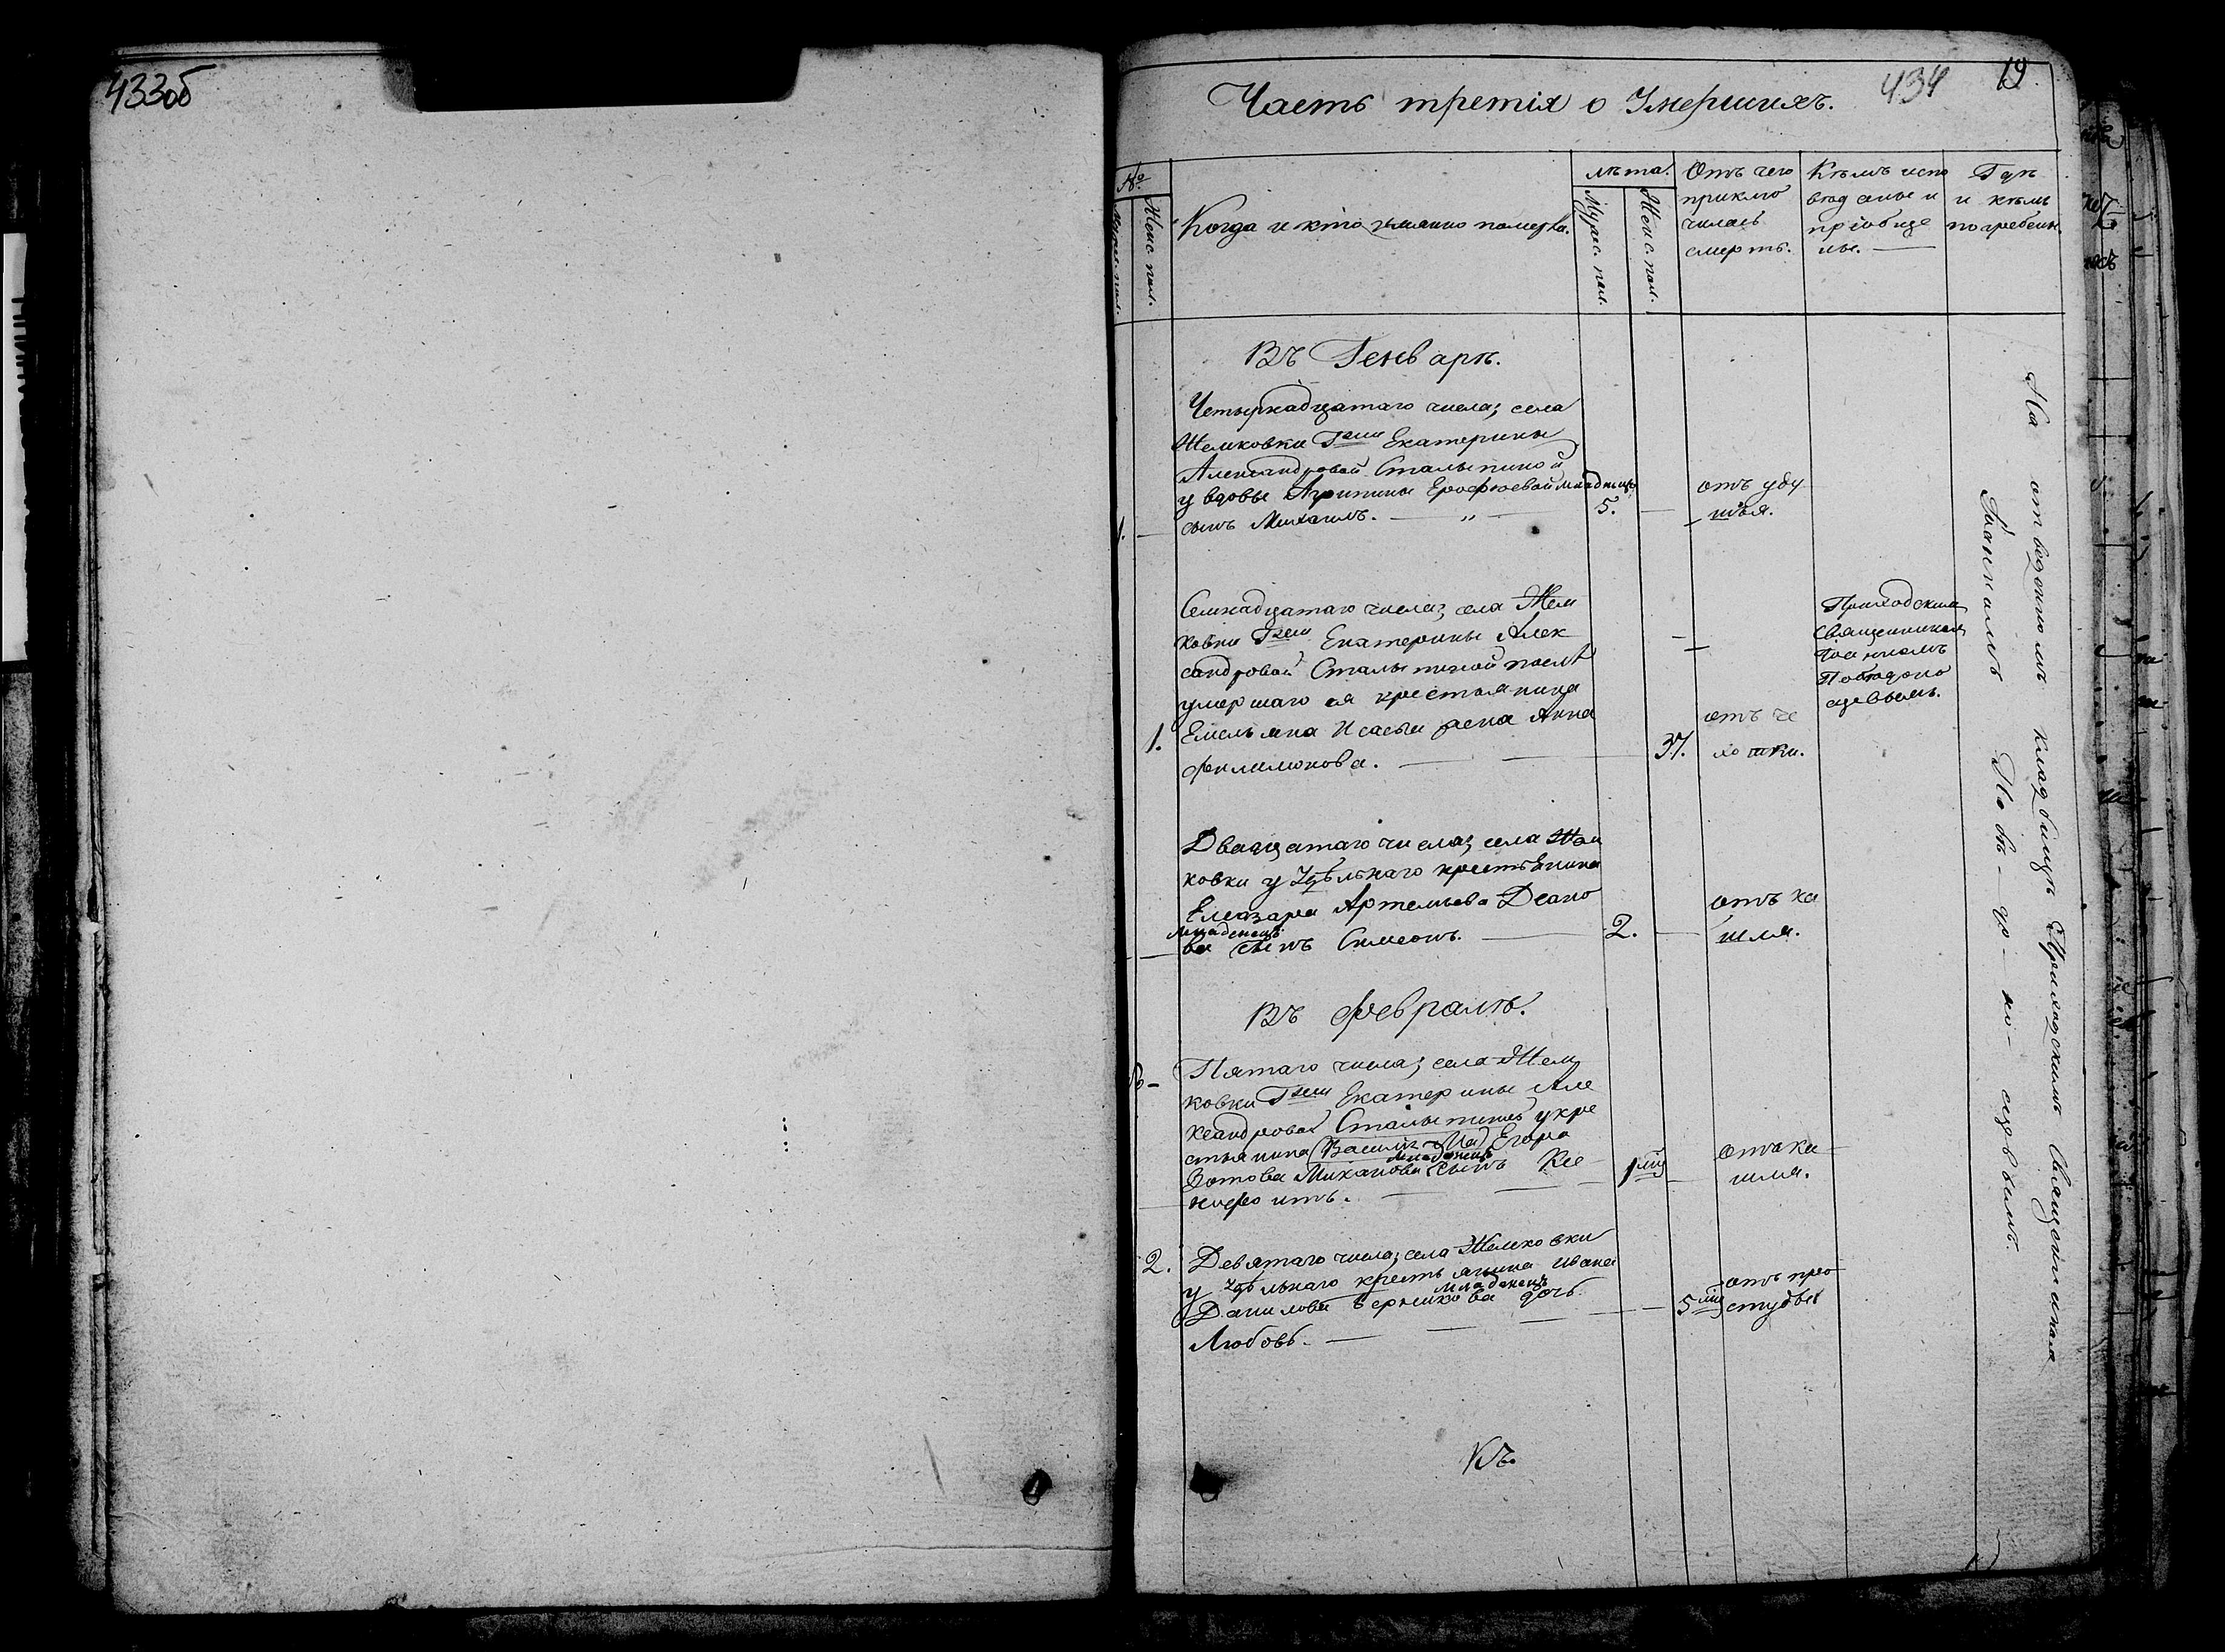 433об
434
19
Часть третія о Умершихъ.
№
Мужес. пол.
Женс. пол.
Когда и кто имянно померъ.
лѣта.
Мужес. пол.
Женс. пол.
Отъ чего
приклю
чилась
смерть.
Кѣмъ испо
вѣдованы и
пріобще
ны.
Гдѣ
и кѣмъ
погребены.
Въ Генварѣ.
Четырнадцатаго числа; села
Шемковки Гжи Екатерины
Александровой Сталыпиной
у вдовы Агрипины Ерофѣевой младенецъ
1. — сынъ Михаилъ. — „ — 5. —
отъ уду
шья.
Семнадцатаго числа; села Шем
ковки Гжи Екатерины Алек
сандровой Сталыпиной послѣ
умершаго ея крестьянина
Емельяна Исаева жена Анна
1. Филимонова. — 37.
отъ че
хотки.
Приходскимъ
Священникомъ
Іоанномъ
Побѣдоно
сцевымъ.
Двадцатаго числа; села Шем
ковки у Удѣльнаго крестьянина
Елеазара Артемьева
младенецъ
ва сынъ Симеонъ. — 2. —
отъ ка
шля.
Въ Февралѣ.
Пятаго числа; села Шем
ковки Гжи Екатерины Але
ксандровой Сталыпиной у кре
стьянина Егора
младенецъ
Зотова сынъ Ксе
нофонтъ. — 1 —
отъ ка
шля.
2. Девятаго числа; села Шемковки
у Удѣльнаго крестьянина Ивана
младенецъ
Данилова дочь
Любовь. — 5
отъ про
студы
На отведенномъ кладбищѣ Приходскимъ Священникомъ
Іоанномъ По-бѣ-до-но-сцевымъ.
Въ